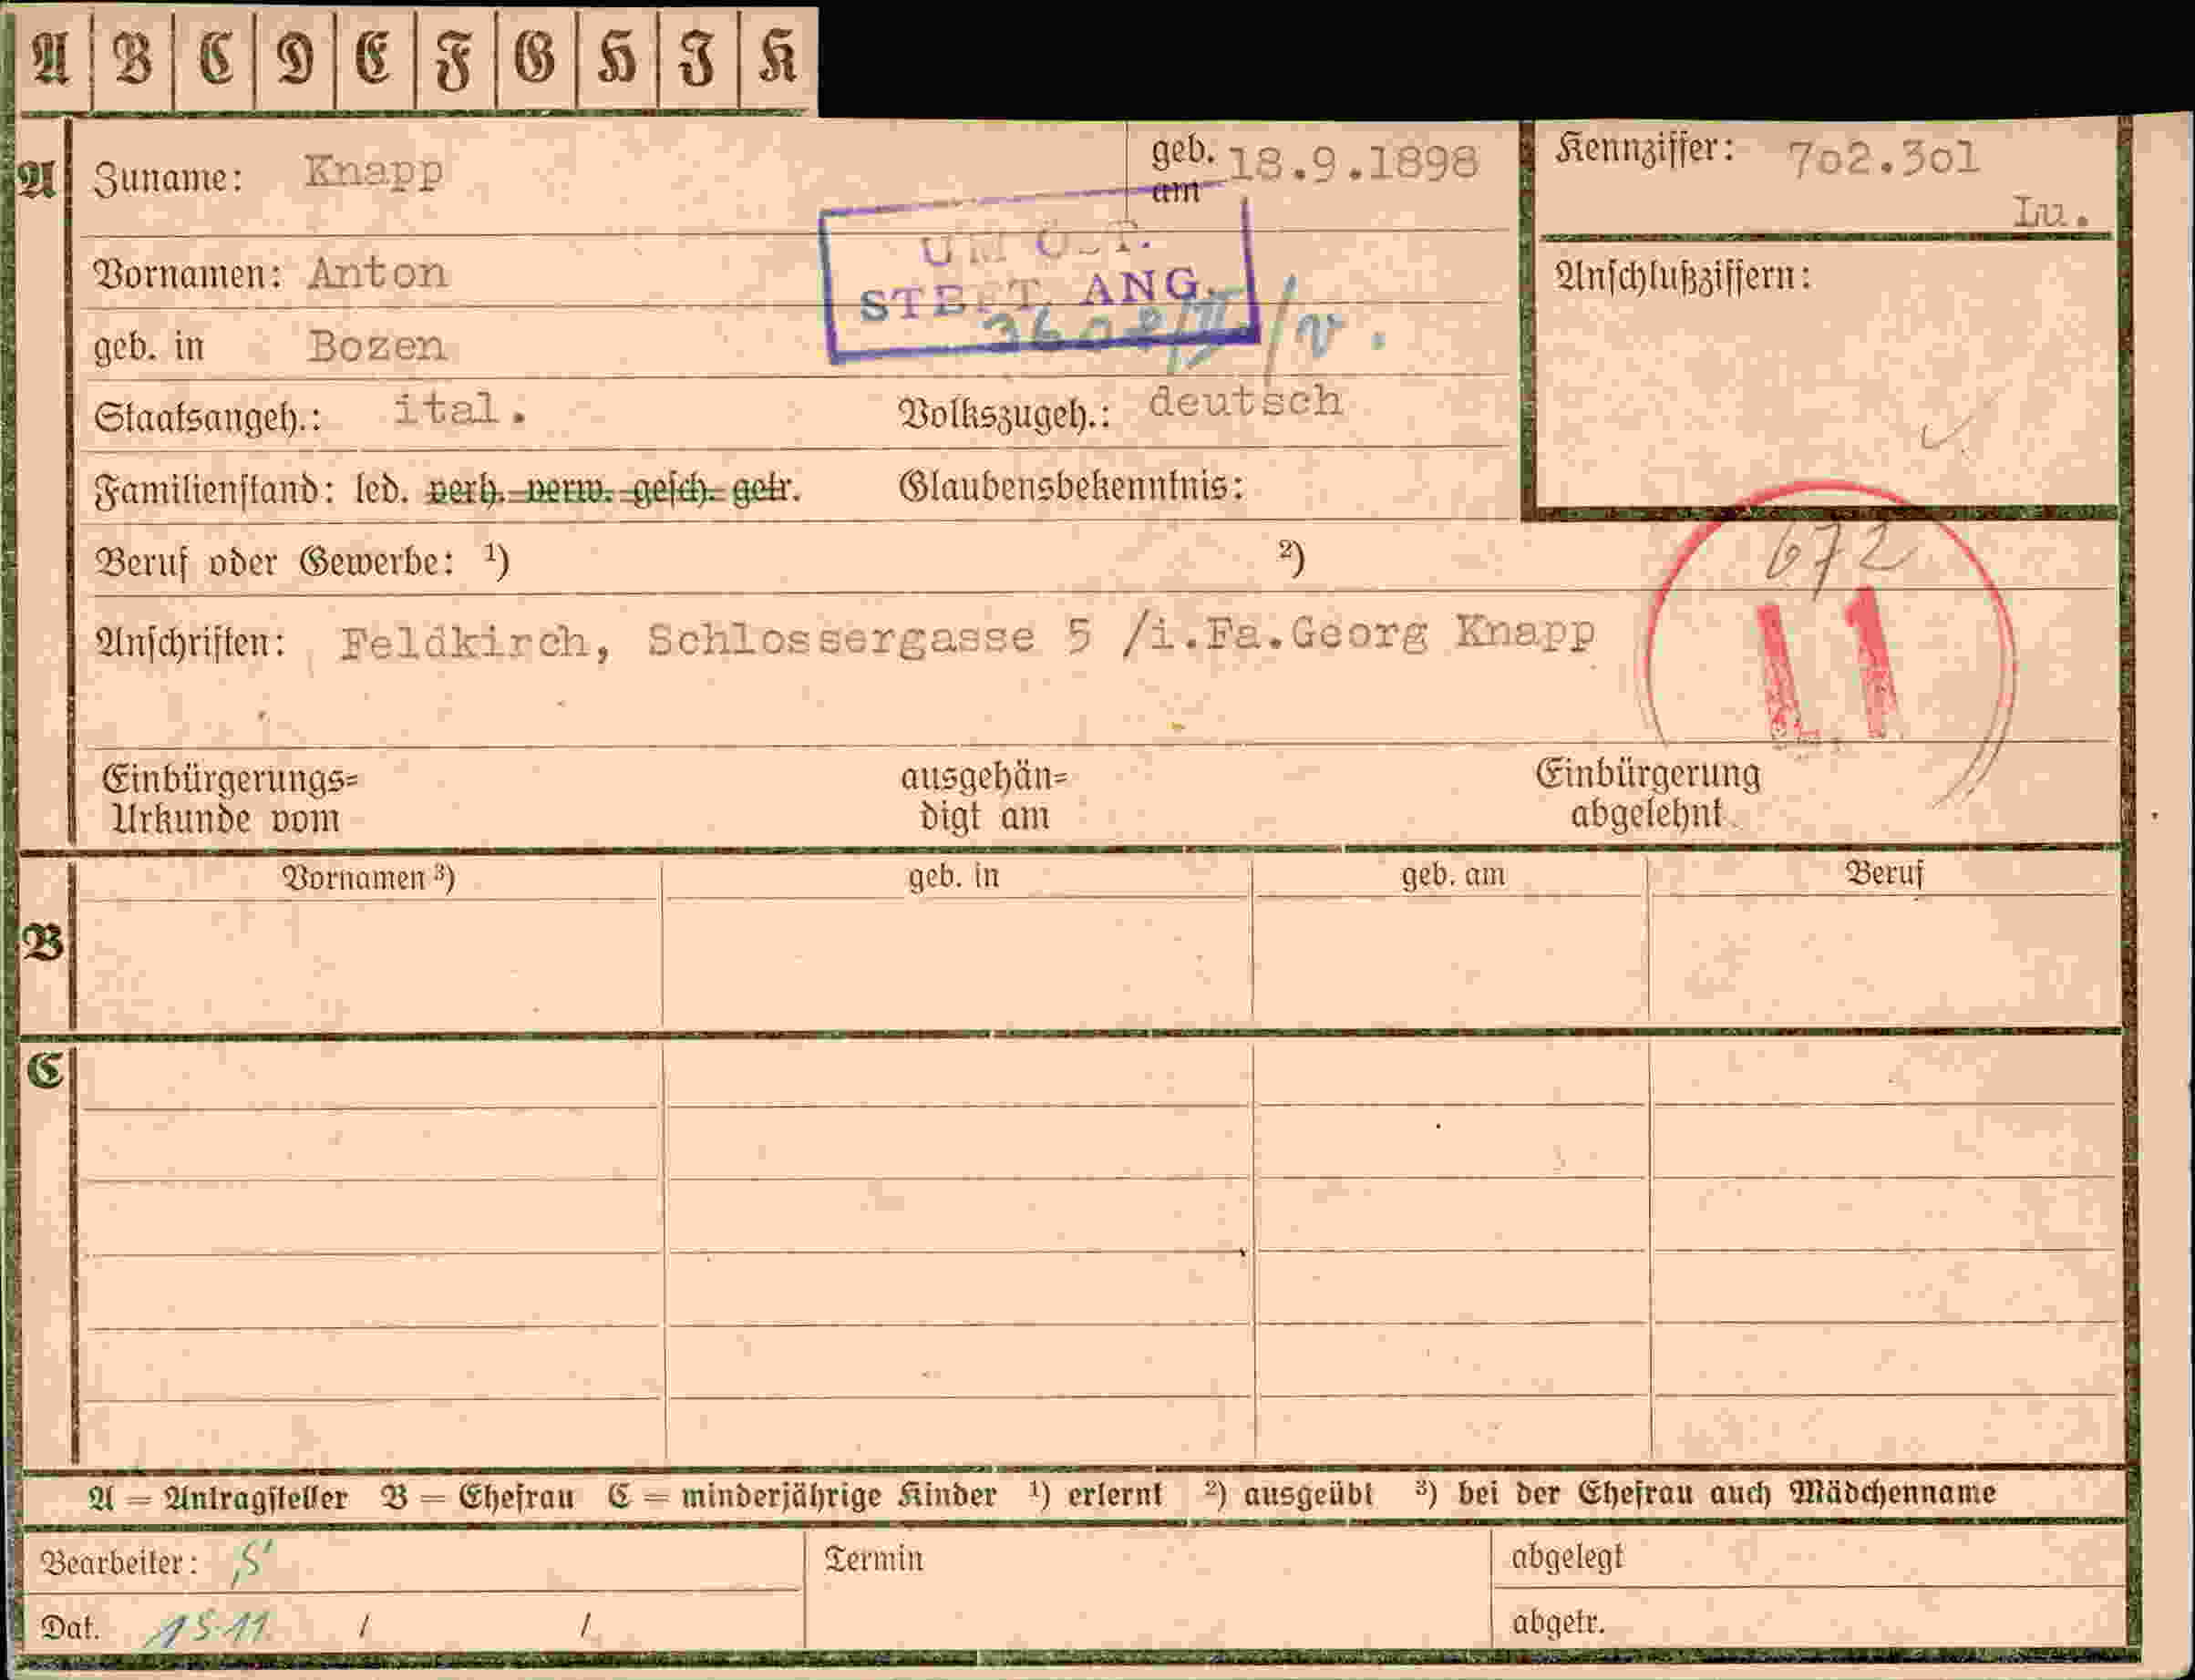 A B C D E F G H I K
A Zuname: Knapp geb. am 18.9.1898 Kennziffer: 7o2.3o1
Lu.
Vornamen: Anton Anschlußziffern:
STBFT. ANG.
geb. in Bozen
Staatsangeh.: ital. Volkszugeh.: deutsch
Familienstand: led. verh. verw. gesch. getr. Glaubensbekenntnis:
Beruf oder Gewerbe: ¹) ²) 672
Anschriften: Feldkirch, Schlossergasse 5 /i.Fa.Georg Knapp
Einbürgerungs= ausgehän= Einbürgerung
Urkunde vom digt am abgelehnt
Vornamen ³) geb. in geb. am Beruf
B
C
A = Antragsteller B = Ehefrau C = minderjährige Kinder ¹) erlernt ²) ausgeübt ³) bei der Ehefrau auch Mädchenname
Bearbeiter: S' Termin abgelegt
Dat. 15.11. / / abgetr.